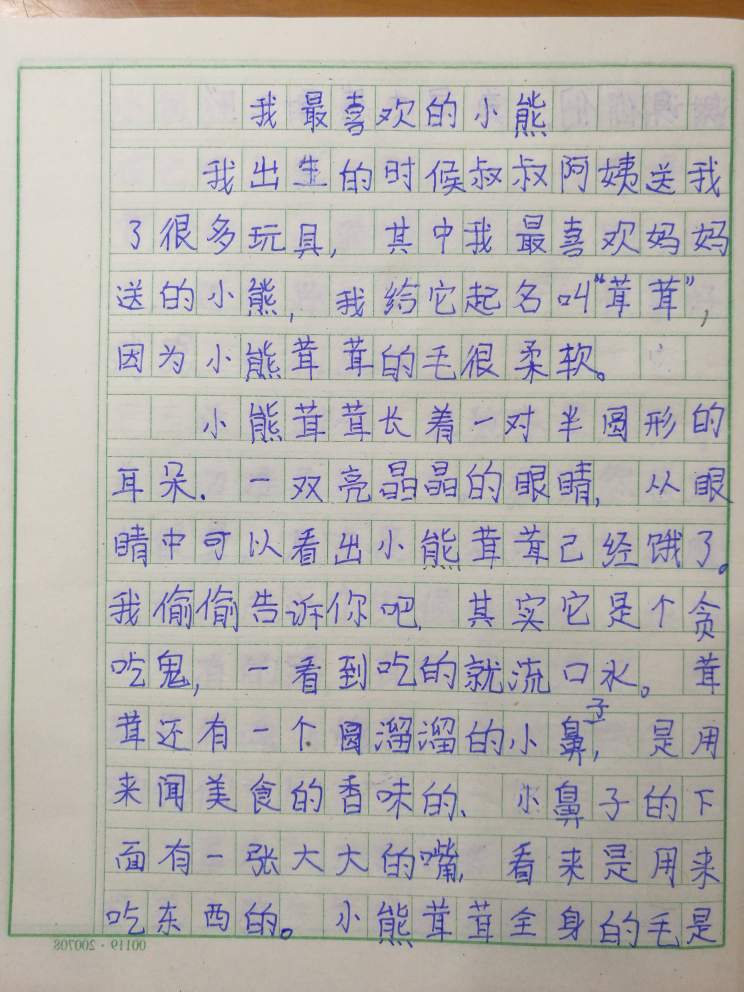 我最喜欢的小熊
我出生的时候叔叔阿姨送我
了很多玩具，其中我最喜欢妈妈
送的小熊，我给它起名叫“茸茸”，
因为小熊茸茸的毛很柔软。
小熊茸茸长着一对半圆形的
耳朵．一双亮晶晶的眼睛，从眼
睛中可以看出小熊茸茸己经饿了。
我偷偷告诉你吧，其实它是个贪
吃鬼，一看到吃的就流口水。茸
茸还有一个圆溜溜的小鼻子，是用
来闻美食的香味的、小鼻子的下
面有一张大大的嘴，看来是用来
吃东西的。小熊茸茸全身的毛是
00119·200708